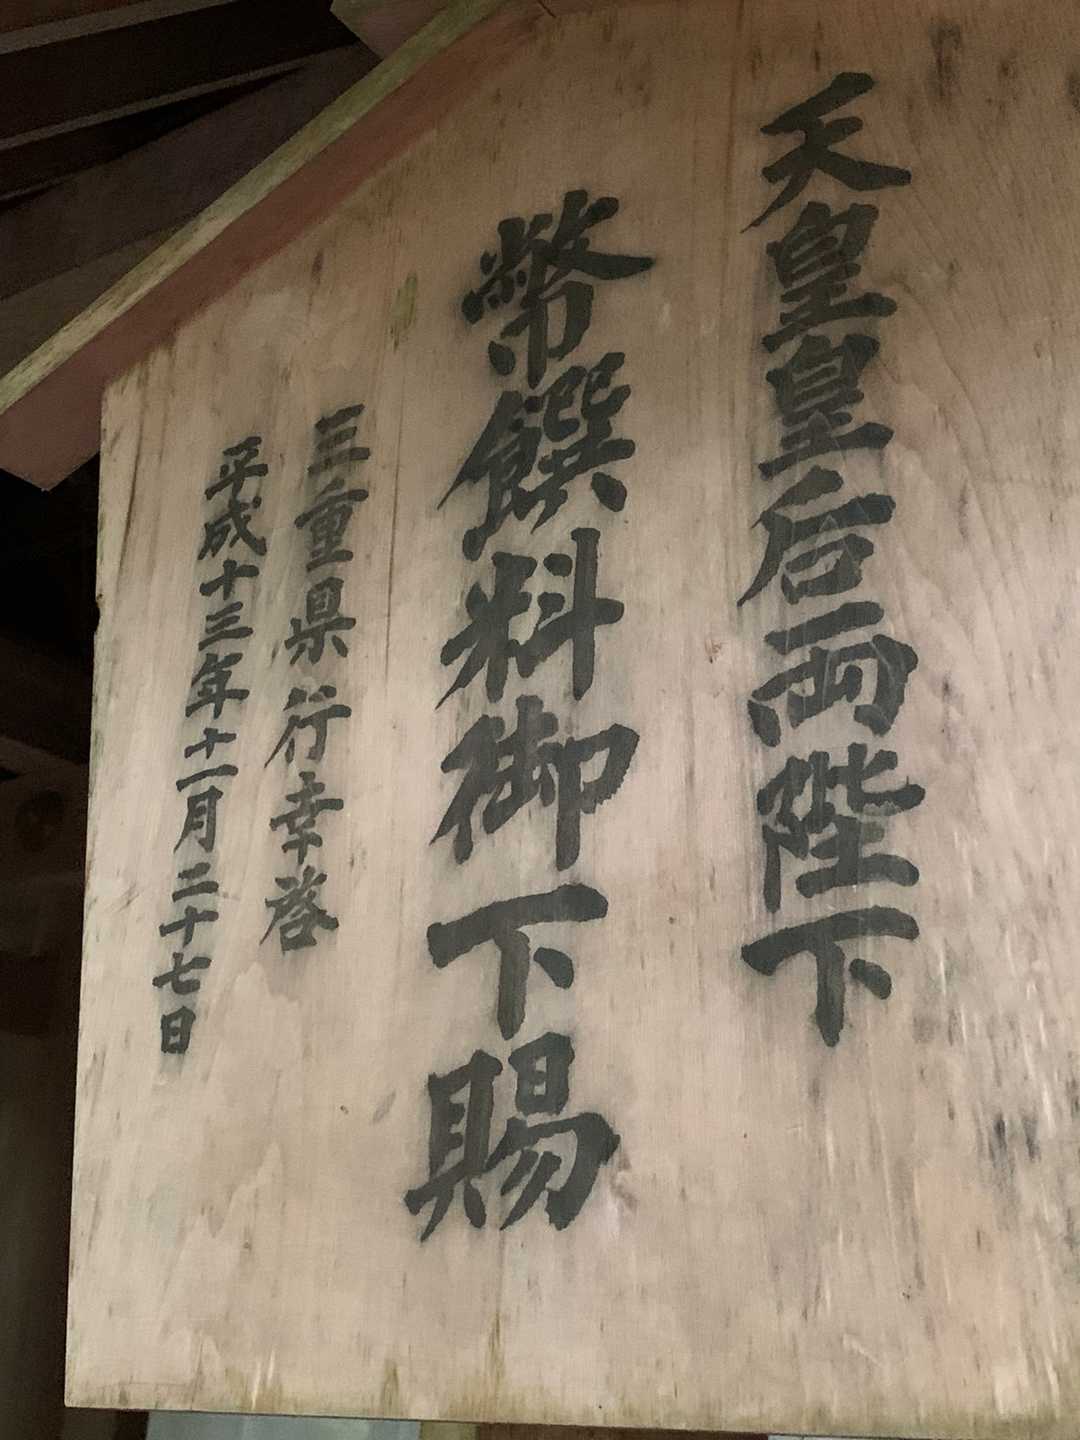 天皇皇后両陛下
幣饌料御下賜
三重県行幸啓
平成十三年十一月二十七日